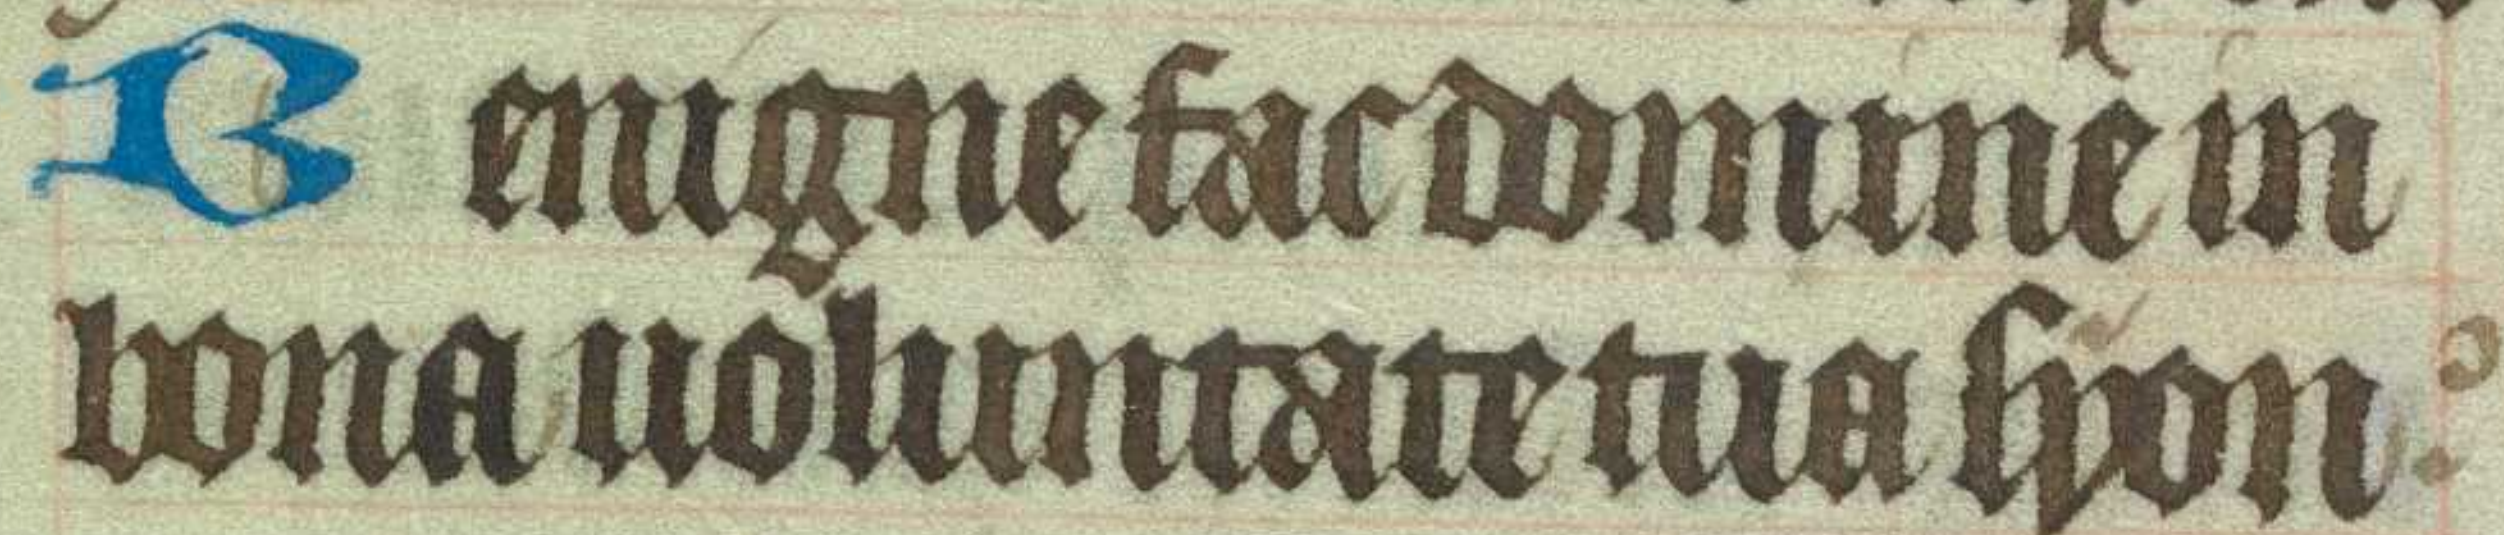 Benigne fac domine in
bona uoluntate tua syon :